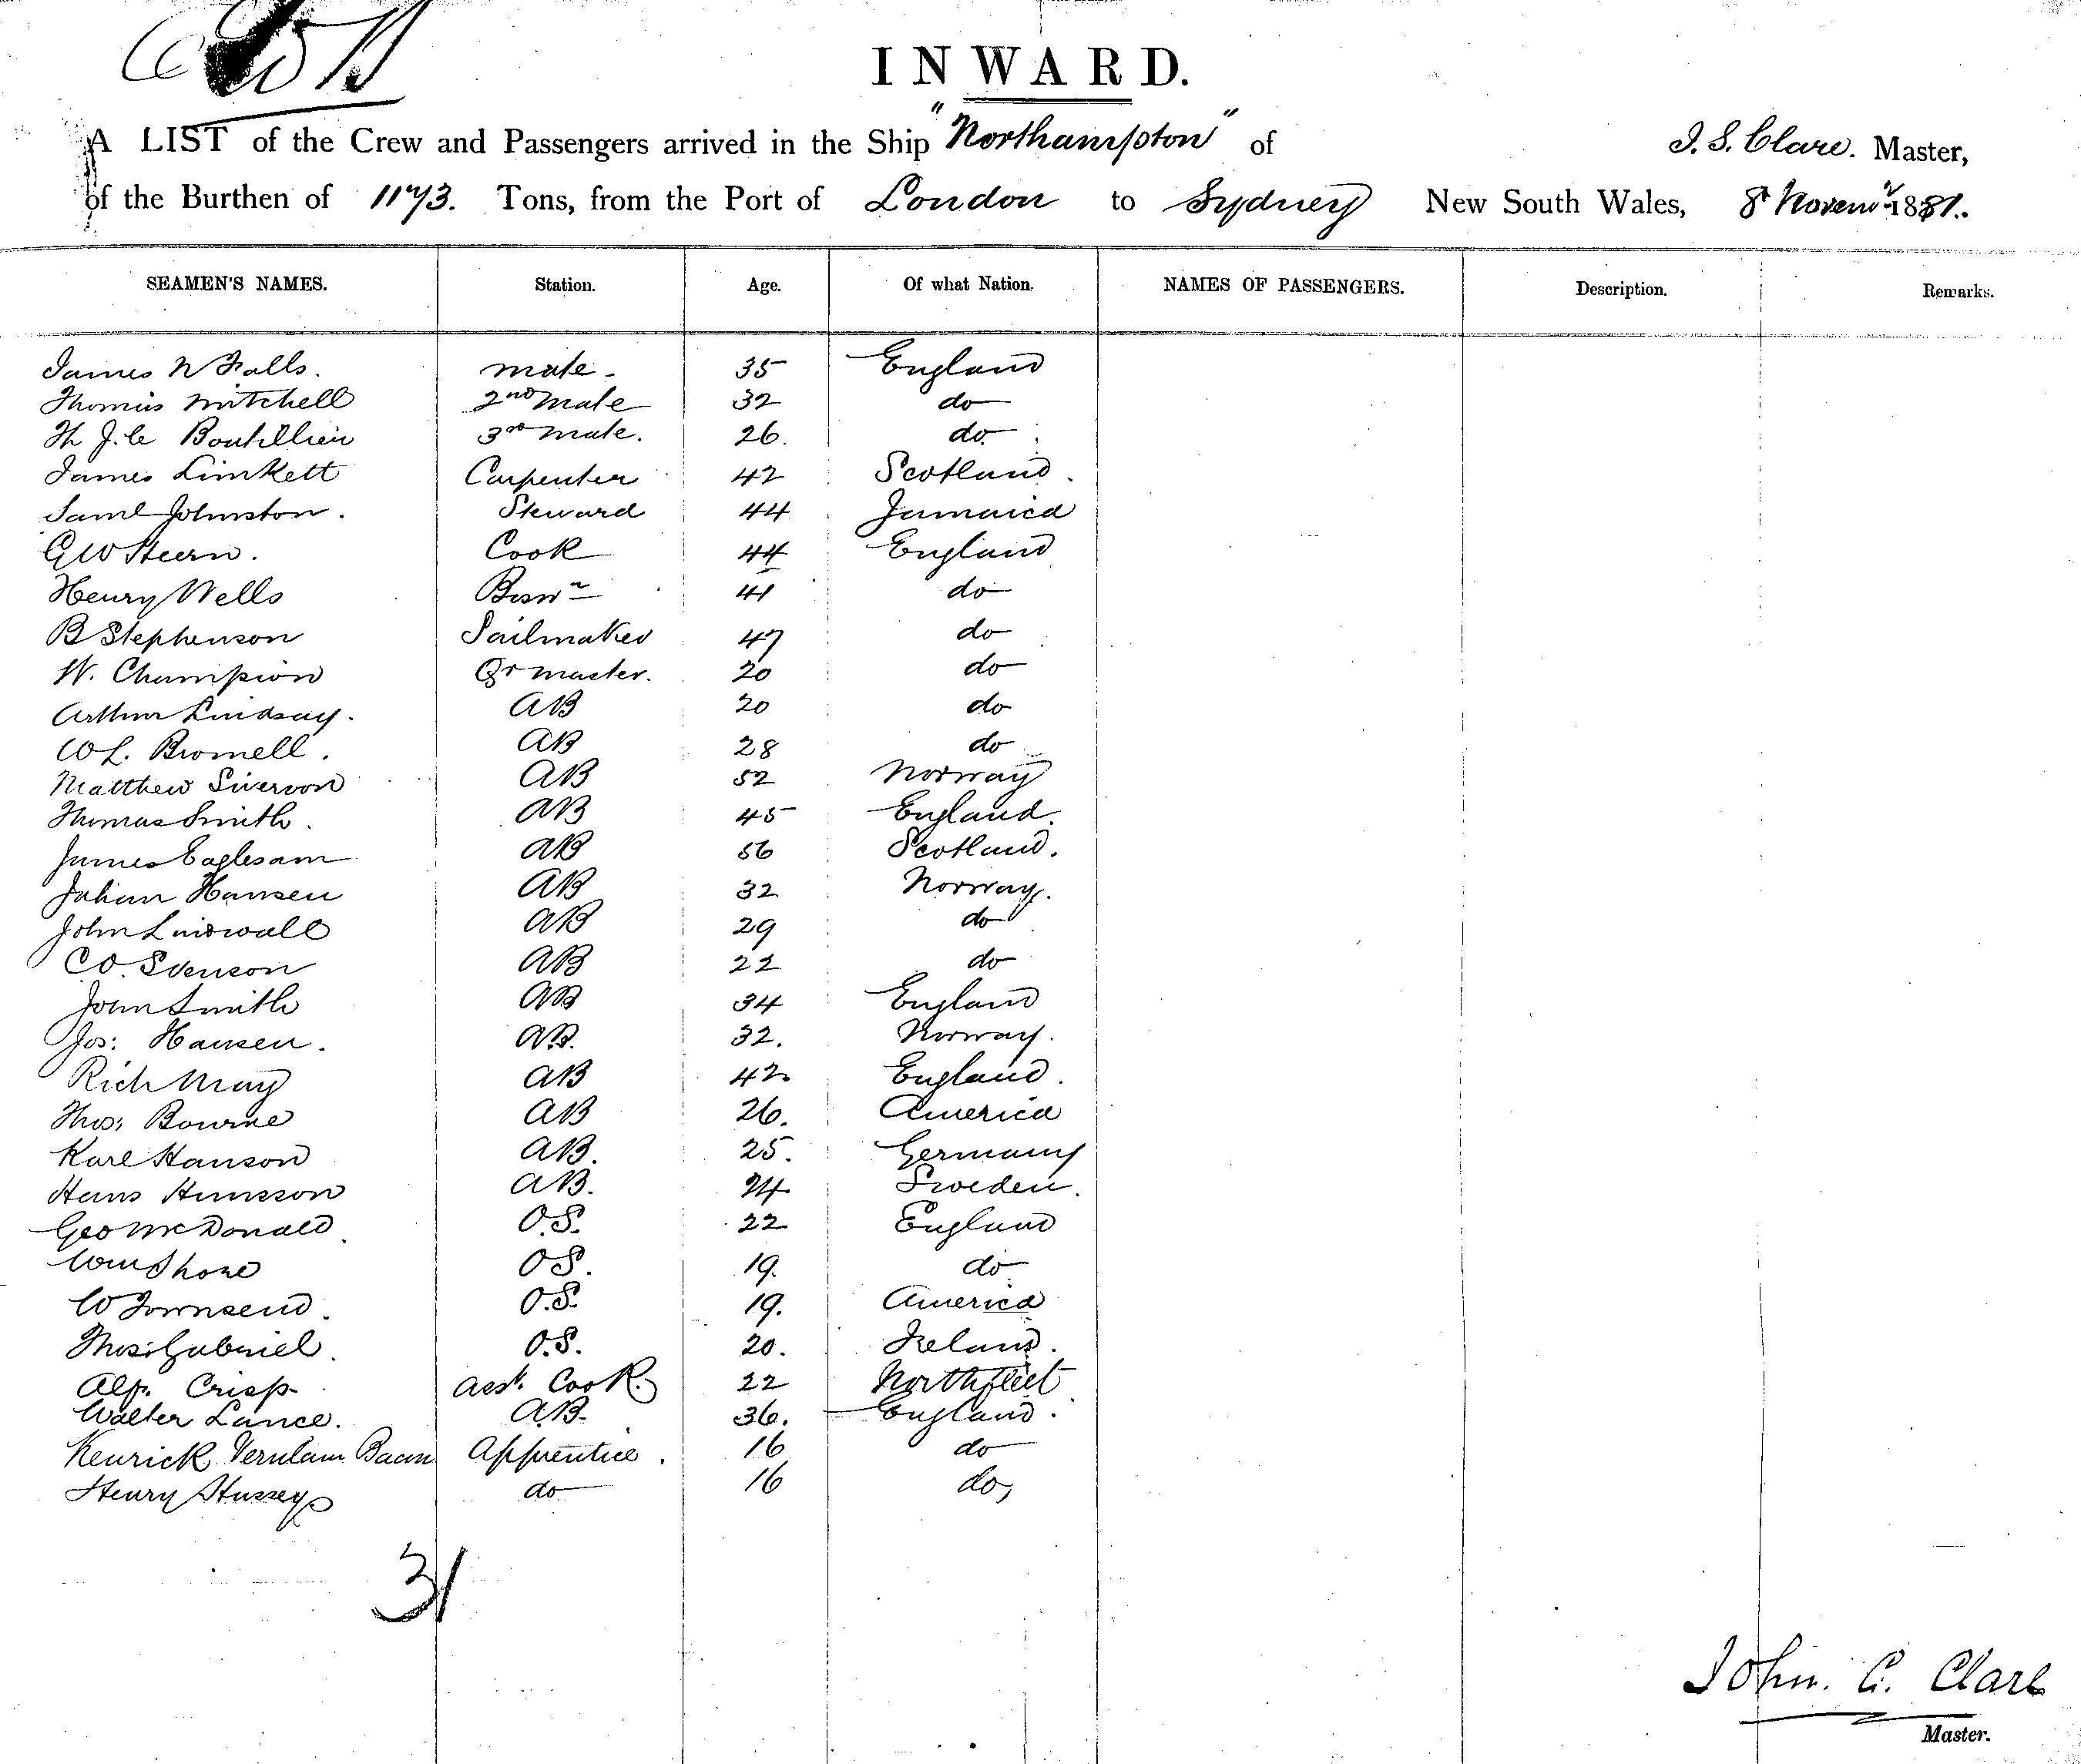 INWARD.
A LIST of the Crew and Passengers arrived in the Ship "Northampton" of J. S. Clare. Master,
of the Burthen of 1173. Tons, from the Port of London to Sydney New South Wales, 8th Novemr 1881.
SEAMEN'S NAMES. Station. Age. Of what Nation. NAMES OF PASSENGERS. Description. Remarks.
James N Falls. mate. 35 England
Thomas Mitchell 2nd mate 32 do
Th J. le Boutillier 3rd mate. 26. do
James Linkett Carpenter 42 Scotland.
Saml Johnston. Steward 44 Jamaica
G W Steern. Cook 44 England
Henry Wells Bosn 41 do
B Stephenson Sailmaker 47 do
W. Champion Qr master. 20 do
Arthur Lindsay. AB 20 do
W L. Bromell. AB 28 do
Matthew AB 52 Norway
Thomas Smith. AB 45 England.
James Eaglesam AB 56 Scotland.
Johan Hansen AB 32 Norway.
John Lindwall AB 29 do
C O. Svenson AB 22 do
John Smith AB 34 England
Jos: Hansen. A.B. 32. Norway.
Rich May AB 42 England.
Thos: Bourne AB 26. America
Karl Hanson AB. 25. Germany
Hans Hansson AB. 24. Sweden.
Geo McDonald O.S. 22 England
Wm Shore O S. 19. do
W Townsend. O.S. 19. America
Thos: Gabriel. O.S. 20. Ireland.
Alf. Crisp Asst. Cook. 22 Northfleet
Walter Lance. A.B. 36. England.
Kenrick Verulam Bacon Apprentice. 16 do
Henry Hussey do 16 do,
31
John. G. Clare
Master.